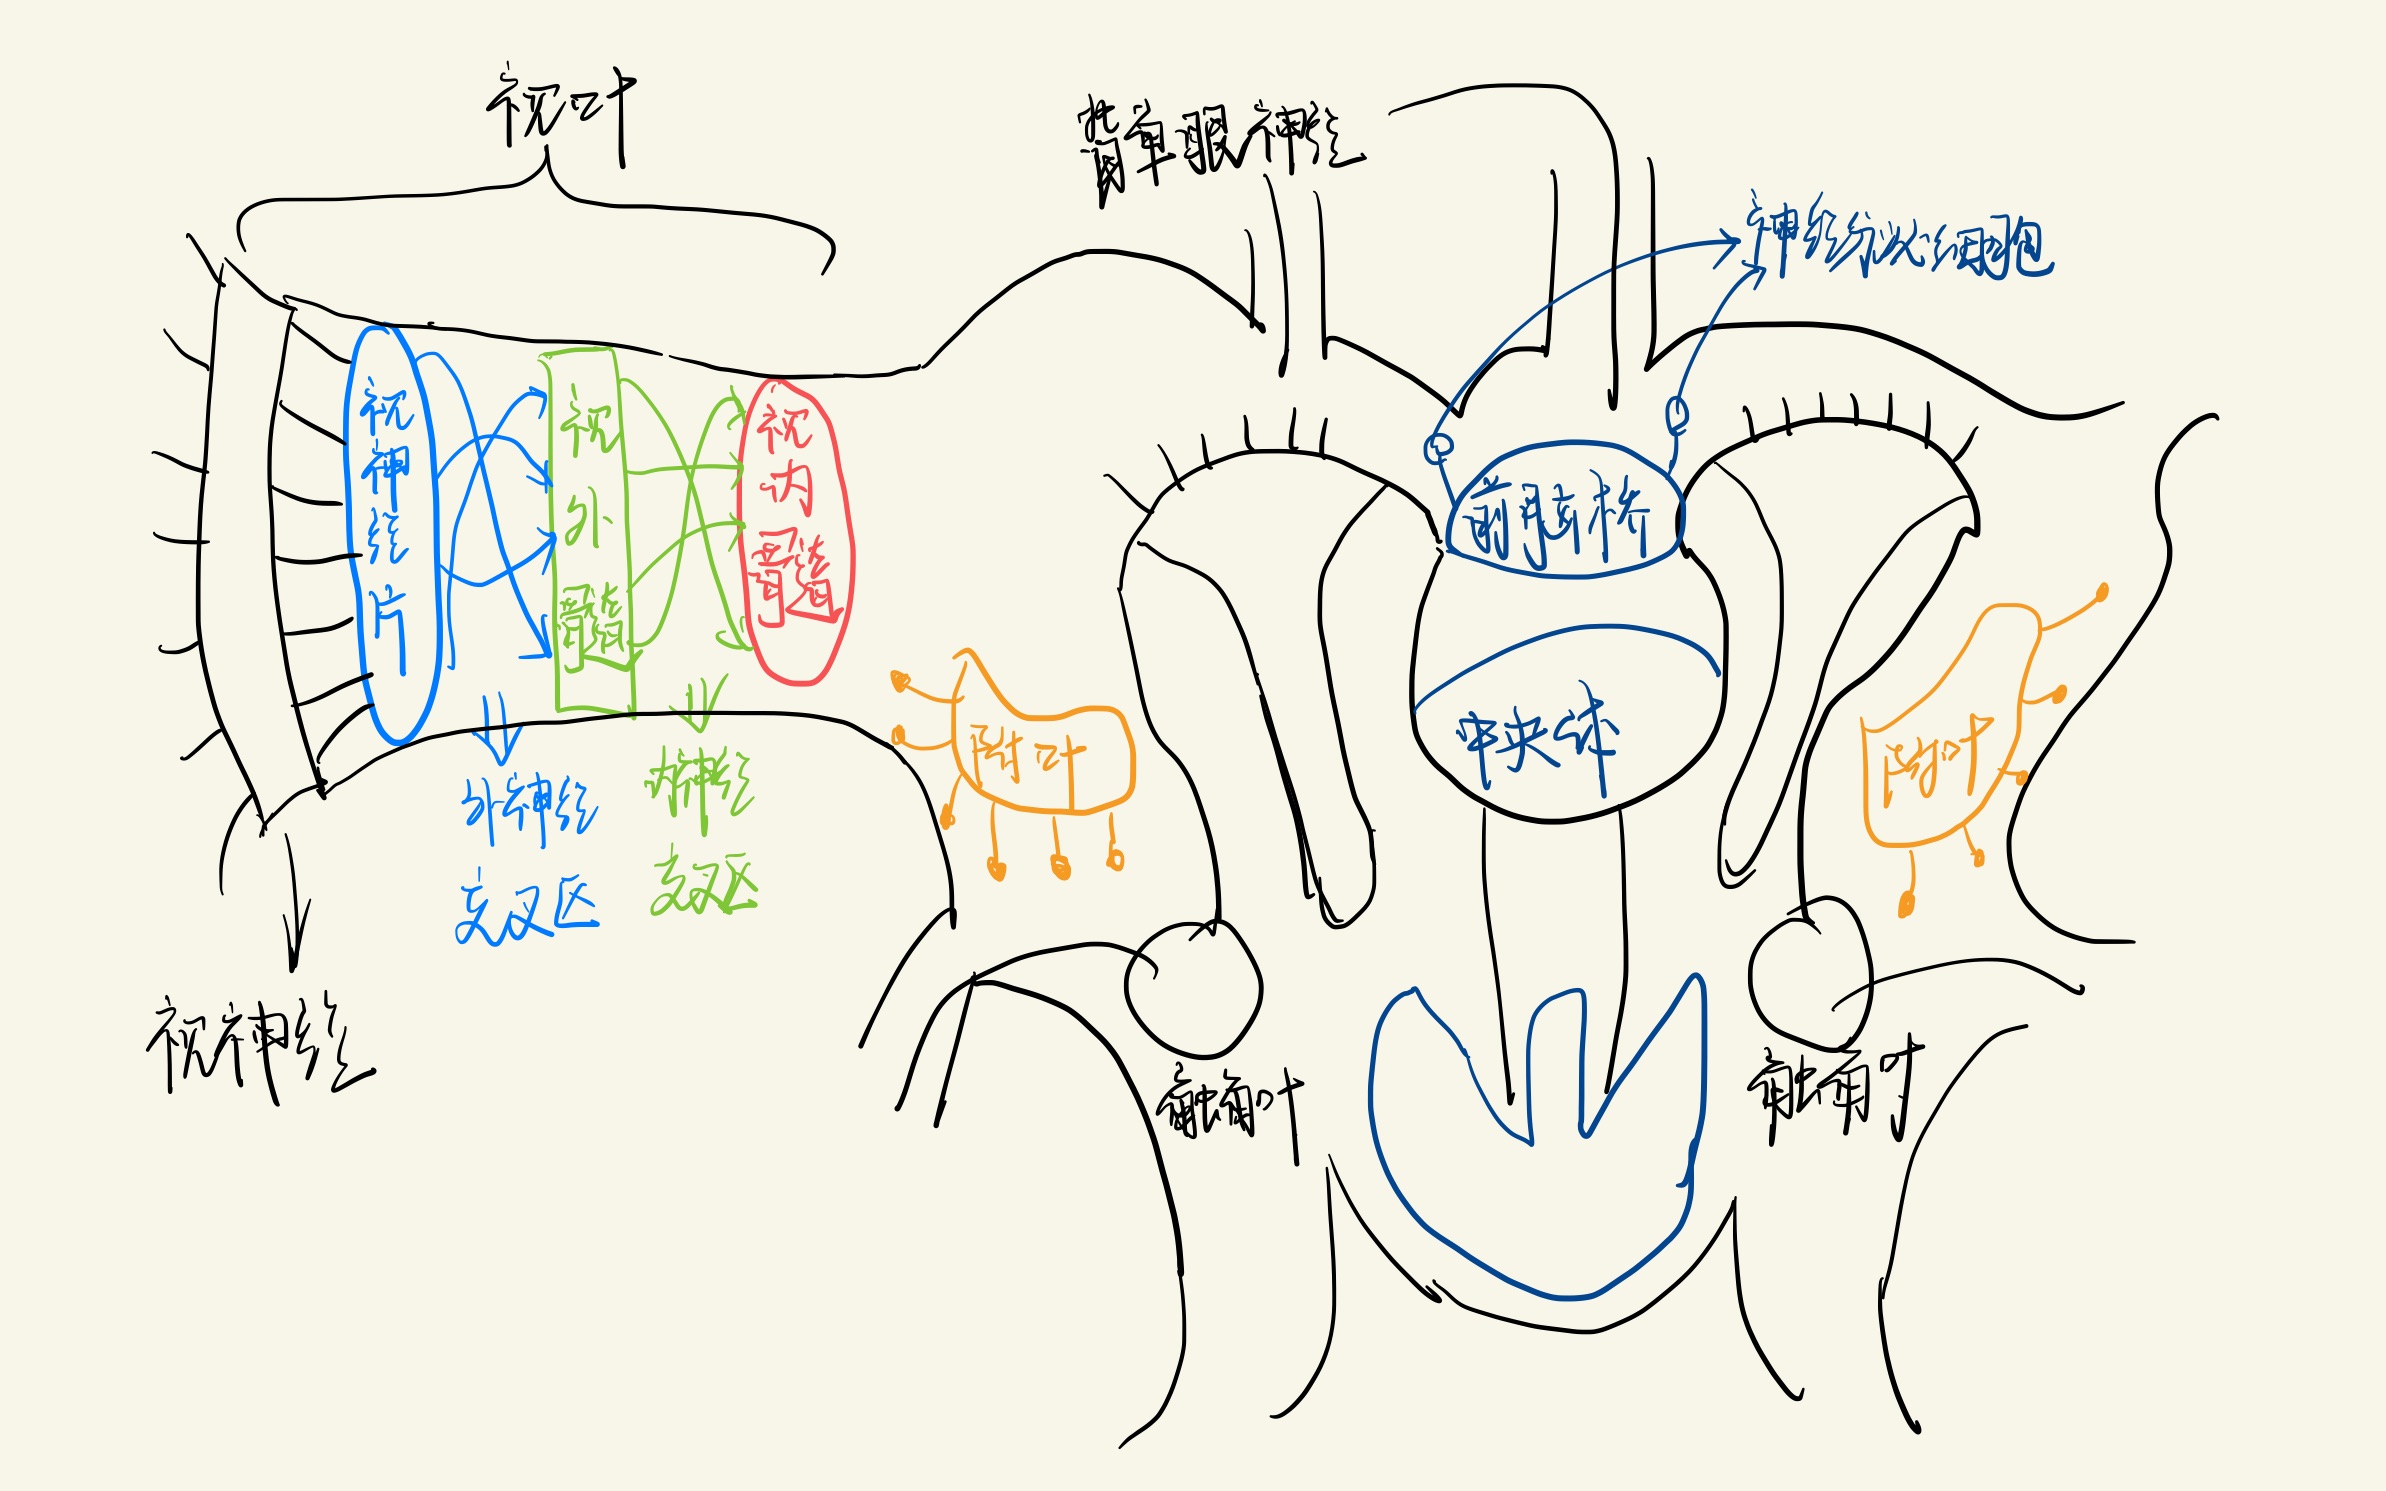 视叶
背单眼神经
神经分泌细胞
视神经片
视外髓
视内髓
前脑桥
中央体
嗅叶
嗅叶
外神经
交叉区
内神经
交叉区
视神经
前腹角叶